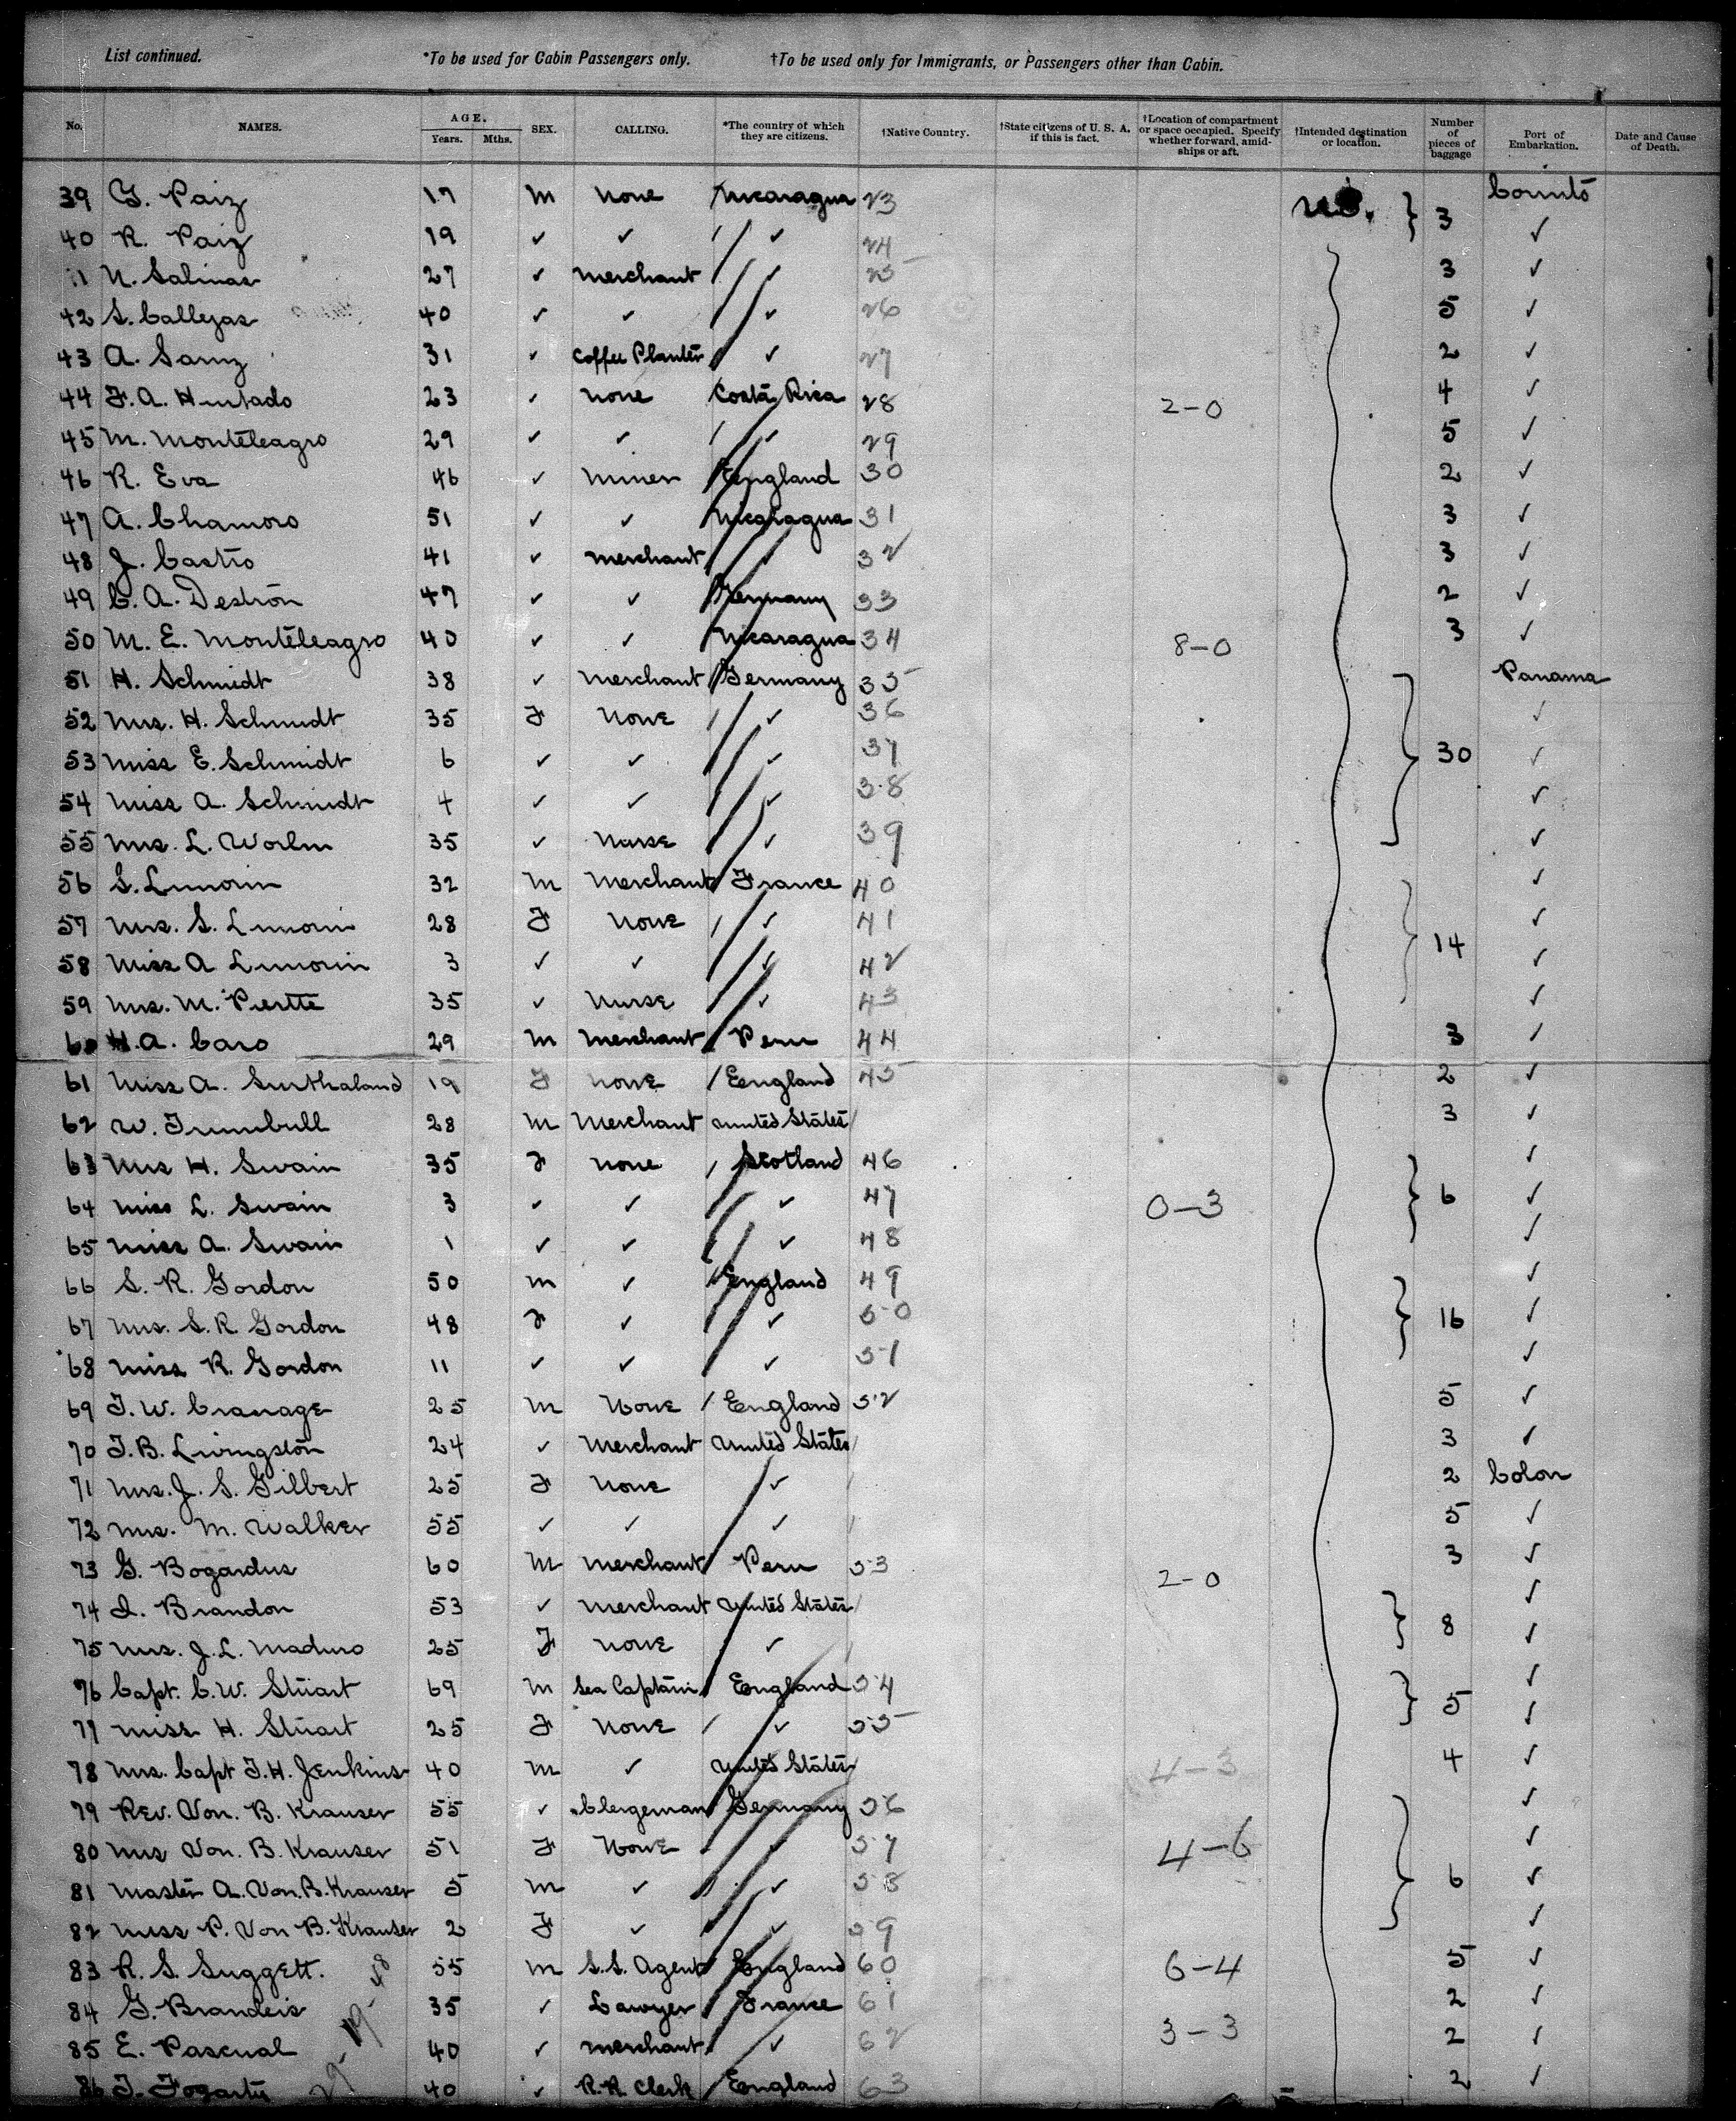 List continued. *To be used for Cabin Passengers only. †To be used only for Immigrants, or Passengers other than Cabin.
No. NAMES. AGE. Years. Mths. SEX. CALLING. *The country of which they are citizens. †Native Country. †State citizens of U. S. A. if this is fact. †Location of compartment or space occupied. Specify whether forward, amidships or aft. †Intended destination or location. Number of pieces of baggage Port of Embarkation. Date and Cause of Death.
39 G. Paiz 17 M None Nicaragua 23 } 3 Corinto
40 R. Paiz 19 ✓ ✓ ✓ 24 ✓
N. Salinas 27 ✓ Merchant ✓ 25 3 ✓
42 S. Callejas 40 ✓ ✓ ✓ 26 5 ✓
43 A. 31 ✓ Coffee Planter ✓ 27 2 ✓
44 F. A. Hurtado 23 ✓ None Costa Rica 28 2-0 4 ✓
45 M. Monteleagro 29 ✓ ✓ ✓ 29 5 ✓
46 R. Eva 46 ✓ Miner England 30 2 ✓
47 A. Chamoro 51 ✓ ✓ Nicaragua 31 3 ✓
48 J. Castro 41 ✓ Merchant ✓ 32 3 ✓
49 C. A. Destron 47 ✓ ✓ Germany 33 2 ✓
50 M. E. Monteleagro 40 ✓ ✓ Nicaragua 34 8-0 3 ✓
51 H. Schmidt 38 ✓ Merchant Germany 35 Panama
52 Mrs. H. Schmidt 35 F None ✓ 36 ✓
53 Miss E. Schmidt 6 ✓ ✓ ✓ 37 } 30 ✓
54 Miss A. Schmidt 4 ✓ ✓ ✓ 38 ✓
55 Mrs. L. 35 ✓ Nurse ✓ 39 ✓
56 S. Limorin 32 M Merchant France 40 ✓
57 Mrs. S. Limorin 28 F None ✓ 41 ✓
58 Miss A Limorin 3 ✓ ✓ ✓ 42 } 14 ✓
59 Mrs. M. Piertte 35 ✓ Nurse ✓ 43 ✓
60 H. A. Caro 29 M Merchant Peru 44 3 ✓
61 Miss A. Surthaland 19 F None England 45 2 ✓
62 W. Trumbull 28 M Merchant United States 3 ✓
63 Mrs H. Swain 35 F None Scotland 46 ✓
64 Miss L. Swain 3 ✓ ✓ ✓ 47 0-3 } 6 ✓
65 Miss A. Swain 1 ✓ ✓ ✓ 48 ✓
66 S. R. Gordon 50 M ✓ England 49 ✓
67 Mrs. S. R. Gordon 48 F ✓ ✓ 50 } 16 ✓
68 Miss R. Gordon 11 ✓ ✓ ✓ 51 ✓
69 T. W. Cranage 25 M None England 52 5 ✓
70 T. B. Livingston 24 ✓ Merchant United States 3 ✓
71 Mrs. J. S. Gilbert 25 F None ✓ 2 Colon
72 Mrs. M. Walker 55 ✓ ✓ ✓ 5 ✓
73 G. Bogardus 60 M Merchant Peru 53 2-0 3 ✓
74 I. Brandon 53 ✓ Merchant United States } 8 ✓
75 Mrs. J. L. Maduro 25 F None ✓ ✓
76 Capt. C. W. Stuart 69 M Sea Captain England 54 } 5 ✓
77 Miss H. Stuart 25 F None ✓ 55 ✓
78 Mrs. Capt T. H. Jenkins 40 M ✓ United States 4-3 4 ✓
79 Rev. Von. B. Krauser 55 ✓ Clergeman Germany 56 ✓
80 Mrs Von. B. Krauser 51 F None ✓ 57 4-6 ✓
81 Master A. Von. B. Krauser 5 M ✓ ✓ 58 } 6 ✓
82 Miss P. Von B. Krauser 2 F ✓ ✓ 59 ✓
83 R. S. Suggett. 55 M S.S. Agent England 60 6-4 5 ✓
84 G. Brandeis 35 ✓ Lawyer France 61 2 ✓
85 E. Pascual 40 ✓ Merchant ✓ 62 3-3 2 ✓
86 T. Fogartie 40 ✓ R.R. Clerk England 63 2 ✓